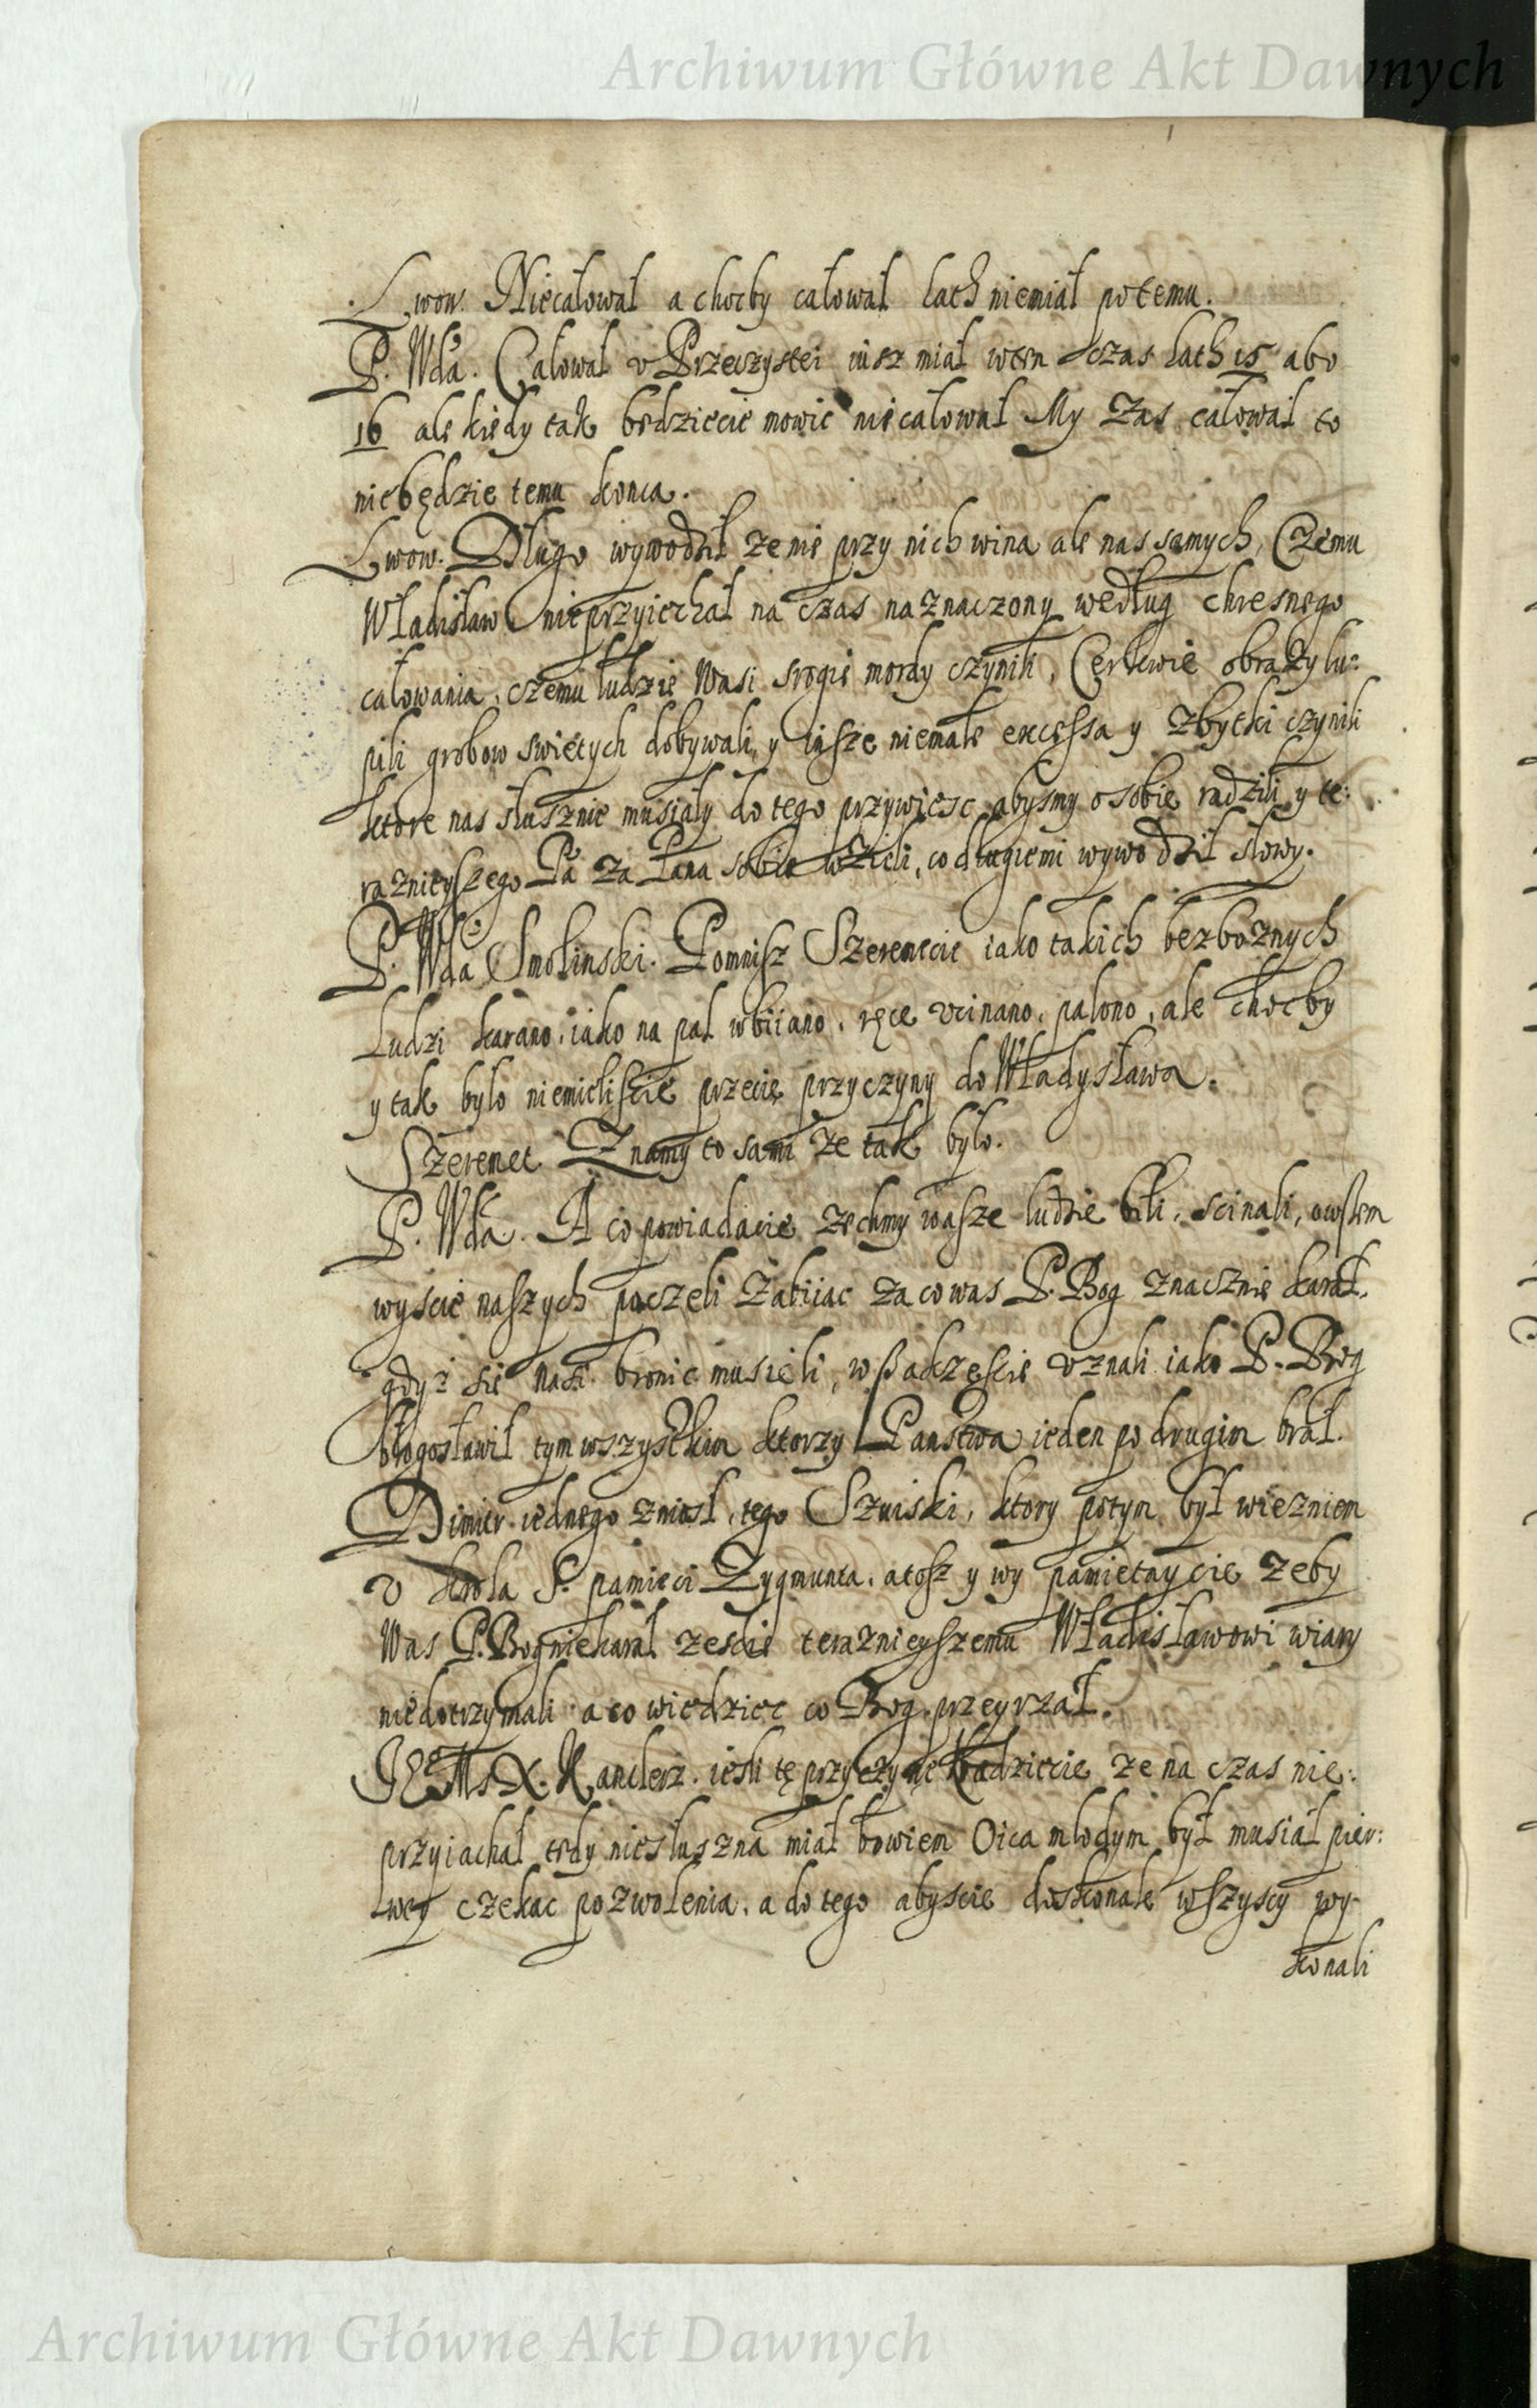 Archiwum Główne Akt Dawnych
Lwow. Niecałował a chocby całował lath niemiał potemu.
P. Wdа. Całował v Przeczystei iusz miał wten czas lath 15 abo
16 ale kiedy tak będziecie mowic niecałował My zas całował to
niebędzie temu konca.
Lwow. Długo wywodził ze nie przy nich wina ale nas samych, Czemu
Władisław nieprzyiechał na czas naznaczony według chresnego
całowania, czemu ludzie Wasi srogie mordy czynili, Cerkwie obrazy łu:
pili grobow swiętych dobywali, y insze niemałe excessa y zbytki czynili
ktore nas słusznie musiały do tego przywiesc abysmy o sobie radzili y te:
raznieyszego Pa za Pana sobie wzieli, co długiemi wywodził słowy.
P. Wda Smolinski. Pomnisz Szeremecie iako takich bezboznych
Ludzi karano, iako na pal wbiiano, ręce vcinano, palono, ale chocby
y tak było niemieliscie przecię przyczyny do Władysława.
Szeremet. Znamy to sami ze tak było.
P. Wda. A co powiadacie zechmy wasze ludzie bili, scinali, owszem
wyscie naszych poczeli zabiiac za co was P. Bog znacznie karał,
gdyż się nasi bronic musieli, wszakzescie vznali iako P. Bog
błogosławił tym wszystkim ktorzy Panstwa ieden po drugim brał.
Dimitr iednego zniosł, tego Szuiski, ktory potym był wiezniem
v Krola S. pamieci Zygmunta, atosz y wy pamietaycie zeby
Was P. Bog niekarał zescie teraznieyszemu Władisławowi wiary
niedotrzymali a co wiedziec co Bog przeyrzał.
JEMs X. Kanclerz. iesli tę przyczynę kładziecie ze na czas nie:
przyiachał tedy niesłuszna miał bowiem Oica młodym był musiał pier:
wey czekac pozwolenia, a do tego abyscie doskonale wszyscy wy-
konali
Archiwum Główne Akt Dawnych